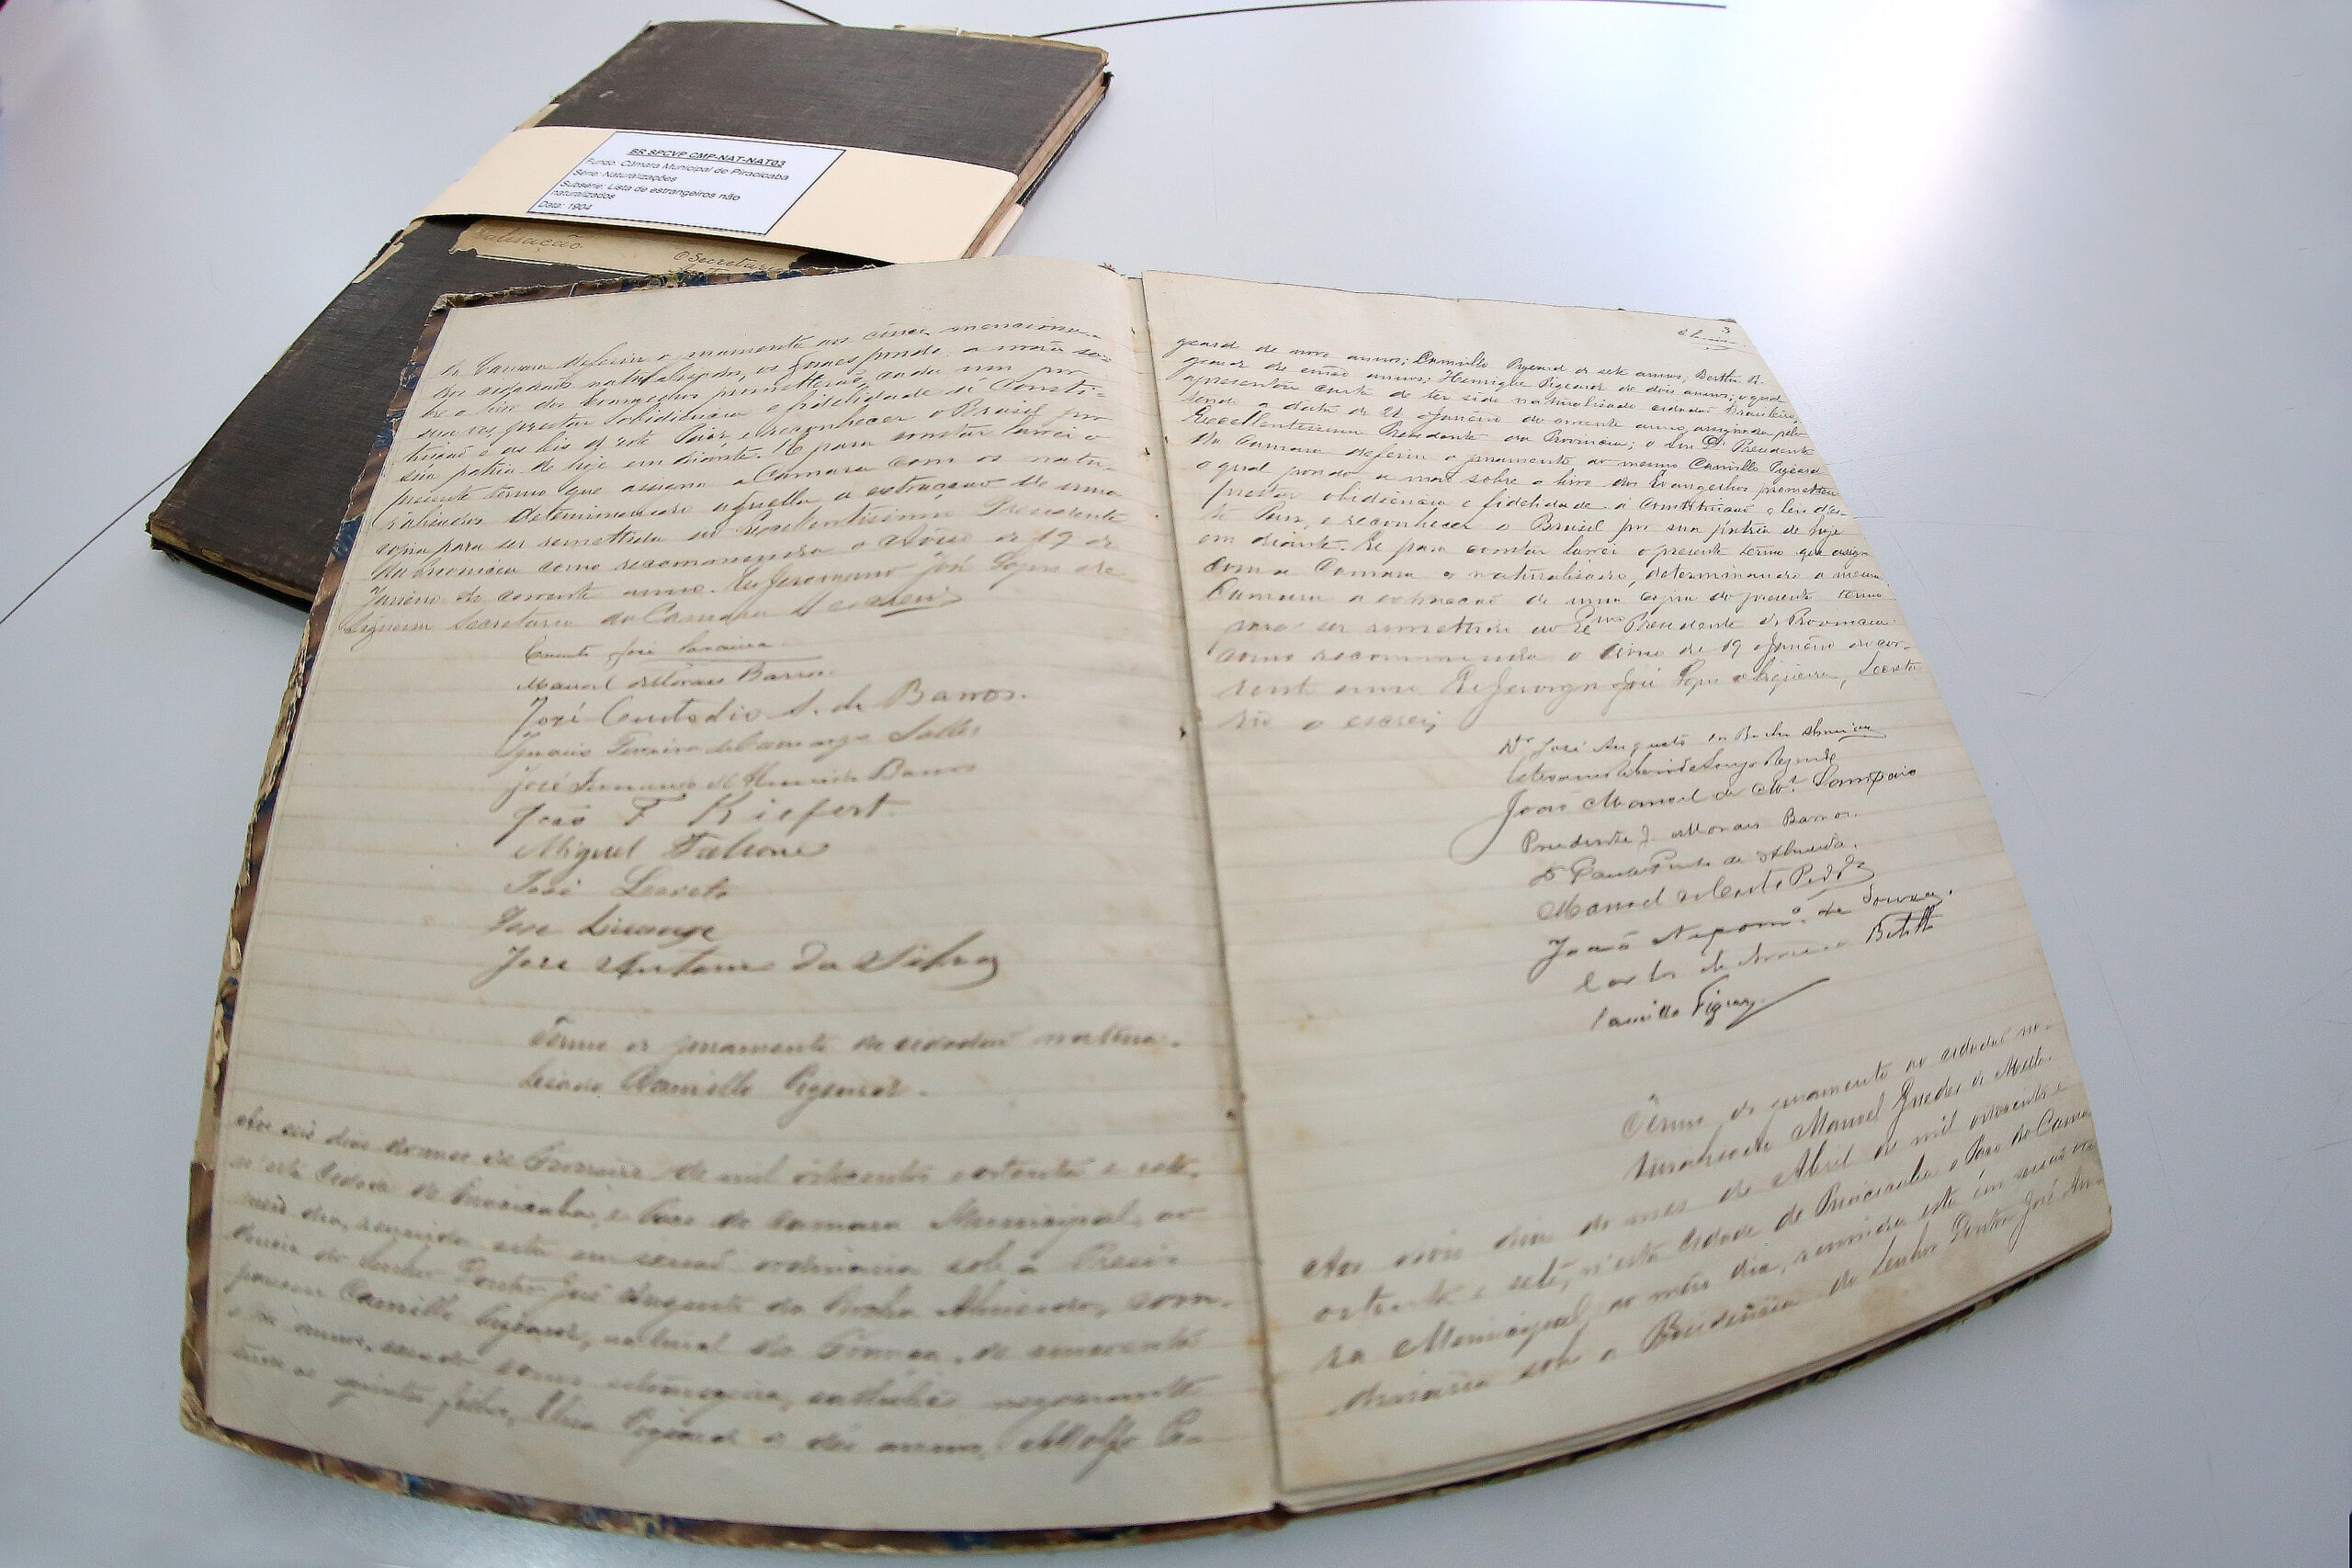 BR SPCVP CMP-NAT-NAT03
Fundo: Câmara Municipal de Piracicaba
Série: Naturalizações
Subsérie: Lista de estrangeiros não
naturalizados
Data: 1904
O Secretario
da Camara deferiu o juramento aos cinco menciona-
dos cidadãos naturalisados, os quaes pondo a mão so-
bre o livro dos Evangelhos prometterão, cada um por
sua vez, prestar obidiencia e fidelidade á Consti-
tuição e as leis d'este Paiz, e reconhecer o Brasil por
sua patria de hoje em diante. E para constar lavrei o
presente termo que assigna a Camara com os natu-
ralisados determinando aquella a extracção de uma
copia para ser remettida ao Excellentissimo Presidente
da Provincia como recommenda o Aviso de 19 de
Janeiro do corrente anno. Eu Jeronymo José Lopes de
Siqueira Secretario da Camara o escrevi
Manoel de Moraes Barros
José Custodio S. de Barros.
Ignacio Ferreira de Camargo Salles
José Fernando de Almeida Barros
João F Kiefert
Miguel Falcone
José Loreto
José Antonio da Silva
Termo de juramento do cidadão natura-
lisado Camillo Pigeard.
Aos seis dias do mez de Fevereiro de mil oitocentos e oitenta e sete,
n'esta Cidade de Piracicaba, e Paço da Camara Municipal, ao
meio dia, reunida esta em sessão ordinaria sob a Presi-
dencia do Senhor Doutor José Augusto da Rocha Almeida, com-
pareceu Camillo Pigeard, natural da França, de cincoenta
e annos, casado com estrangeira, catholico, negociante
tem os seguintes filhos, Pigeard de dez annos, Adolfo Pi-
3
geard de nove annos; Camillo Pigeard de sete annos, Bertha Pi-
geard de cinco annos; Henrique Pigeard de dois annos; o qual
apresentou carta de ter sido naturalisado cidadão Brasileiro,
sendo a data de 21 de Janeiro do corrente anno, assignada pelo
Excellentissimo Presidente da Provincia; o Snr. Dr. Presidente
da Camara deferiu o juramento ao mesmo Camillo Pigeard
o qual pondo a mão sobre o livro dos Evangelhos prometteu
prestar obidiencia e fidelidade á Constituição e leis d'es-
te Paiz, e reconhecer o Brasil por sua patria de hoje
em diante. E para constar lavrei o presente termo que assigna
com a Camara o naturalisado, determinando a mesma
Camara a extracção de uma copia do presente termo
para ser remettida ao Exmo Presidente da Provincia
como recommenda o Aviso de 19 de Janeiro do cor-
rente anno Eu Jeronymo José Lopes de Siqueira, Secreta-
rio o escrevi
Dr José Augusto da Rocha Almeida
João Manoel de Mes Sampaio
Prudente J. de Moraes Barros.
Dr Paulo Pinto de Almeida.
Manoel da Costa Pedrza
João Nepomo. de Souza.
Carlos de Arruda Botelho
Camillo Pigeard
Termo de juramento ao cidadão na-
turalisado Manoel Guedes de Mello.
Aos dois dias do mez de Abril de mil oitocentos e
oitenta e sete, n'esta Cidade de Piracicaba e Paço da Cama-
ra Municipal, ao meio dia, reunida esta em sessão or-
dinaria sob a Presidencia do Senhor Doutor José Au-